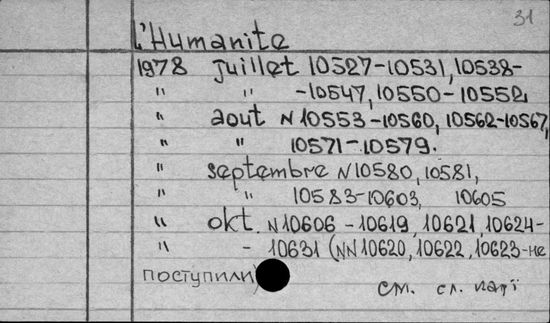 31
L'Humanite
1978 juillet 10527-10531, 10538-
" " -10547, 10550-10552,
" aout N 10553-10560, 10562-10567,
" " 10571-10579.
" septembre N10580, 10581,
" " 10583-10603, 10605
" okt. N10606 - 10619, 10621, 10624-
" - 10631 (NN10620, 10622, 10623-не
поступили)
см. сл.